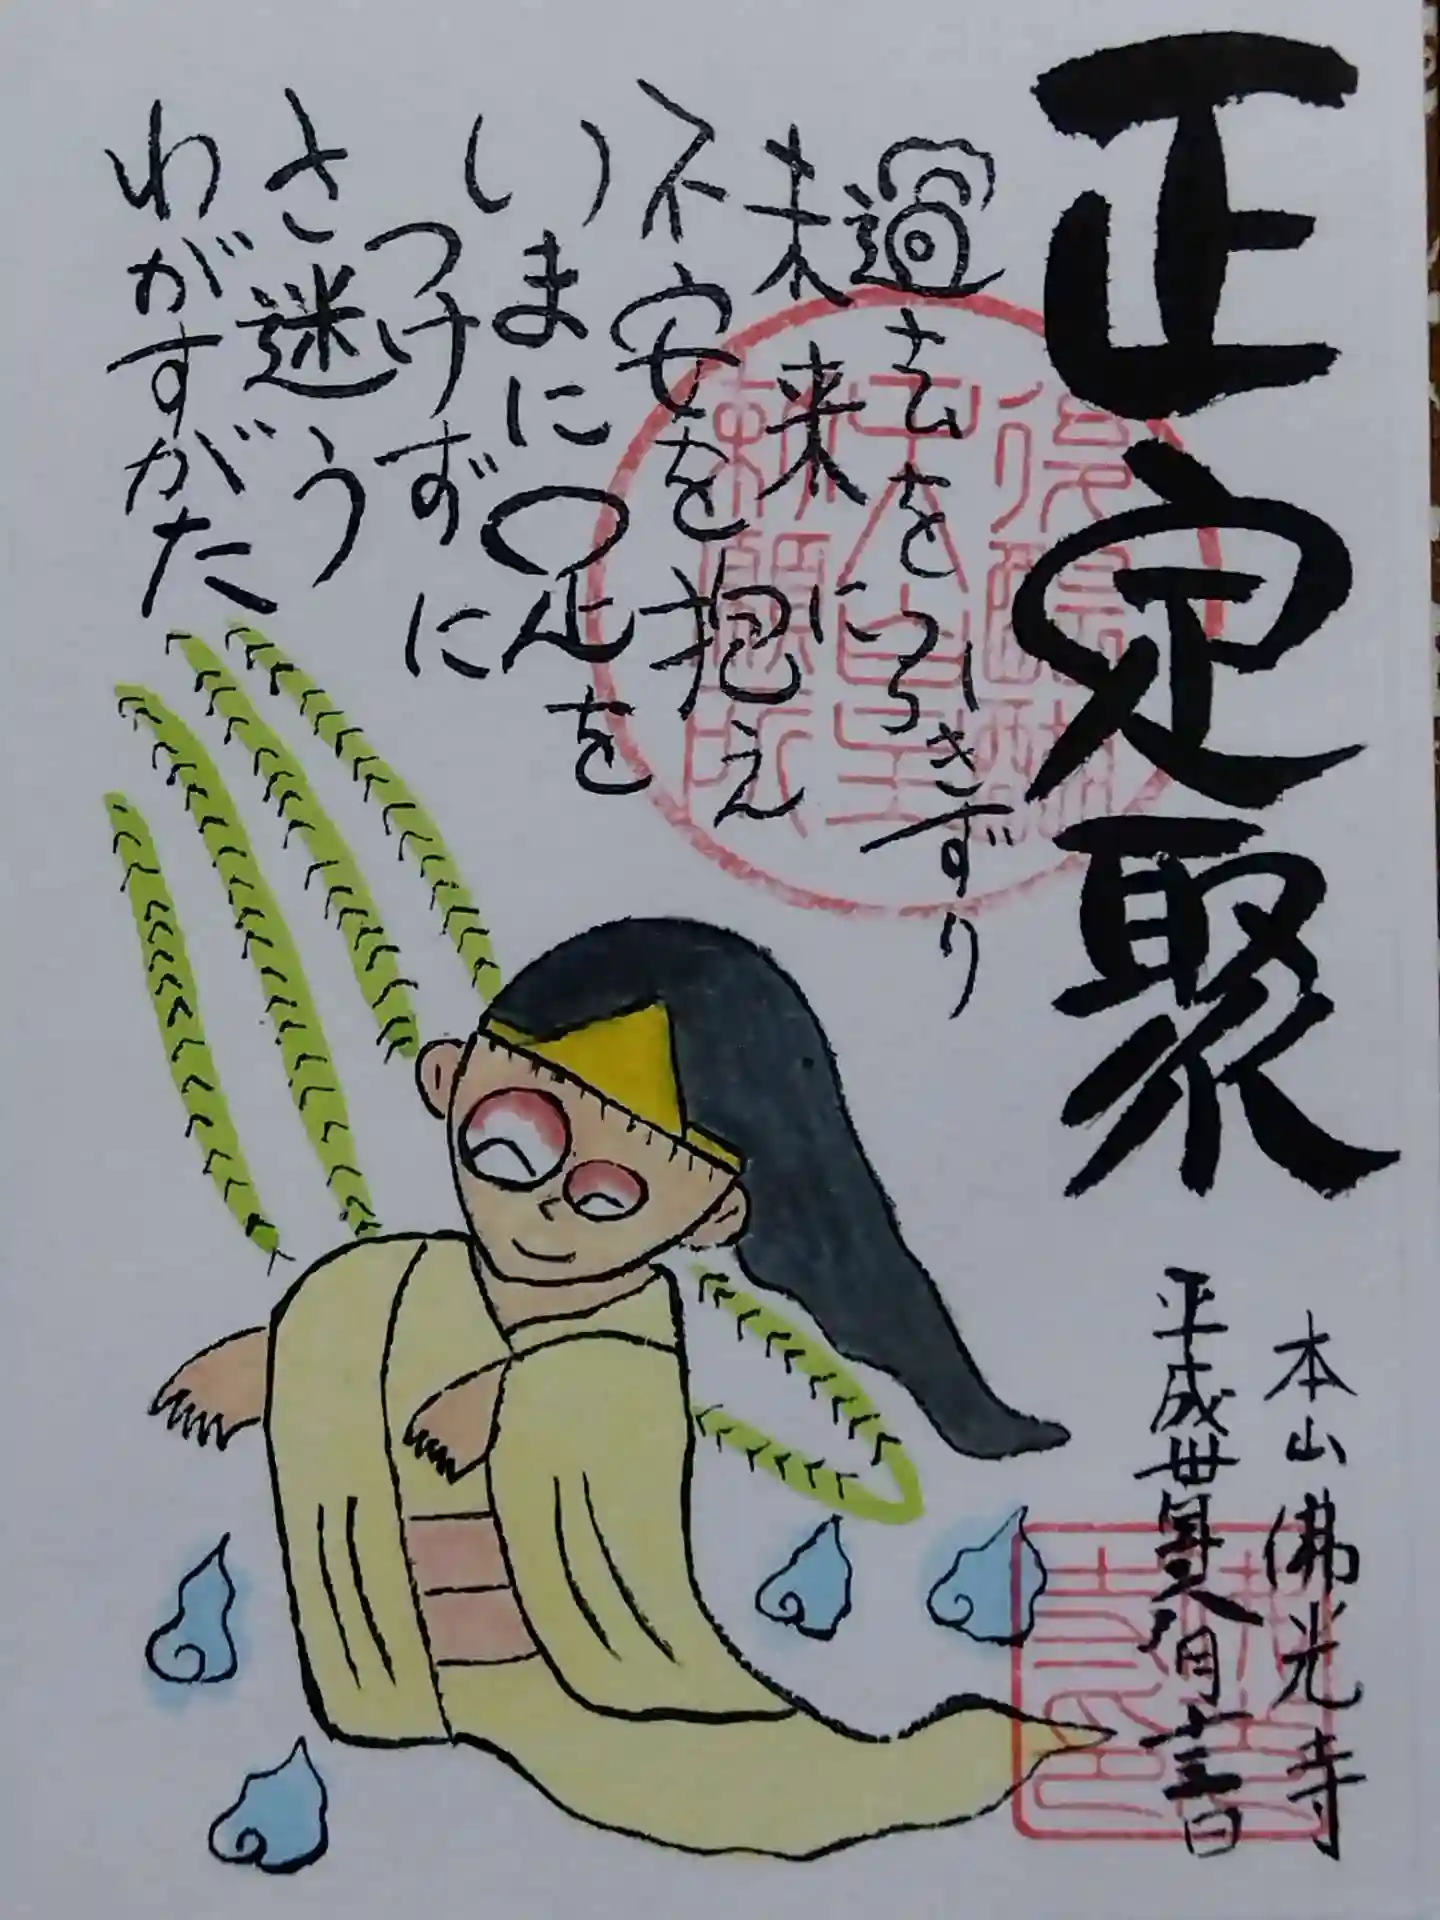 正定聚
本山佛光寺
平成卅
過去を引きずり
未来に
不安を抱え
いまに足を
つけずに
さ迷う
わがすがた
後醍醐
天皇
勅願所